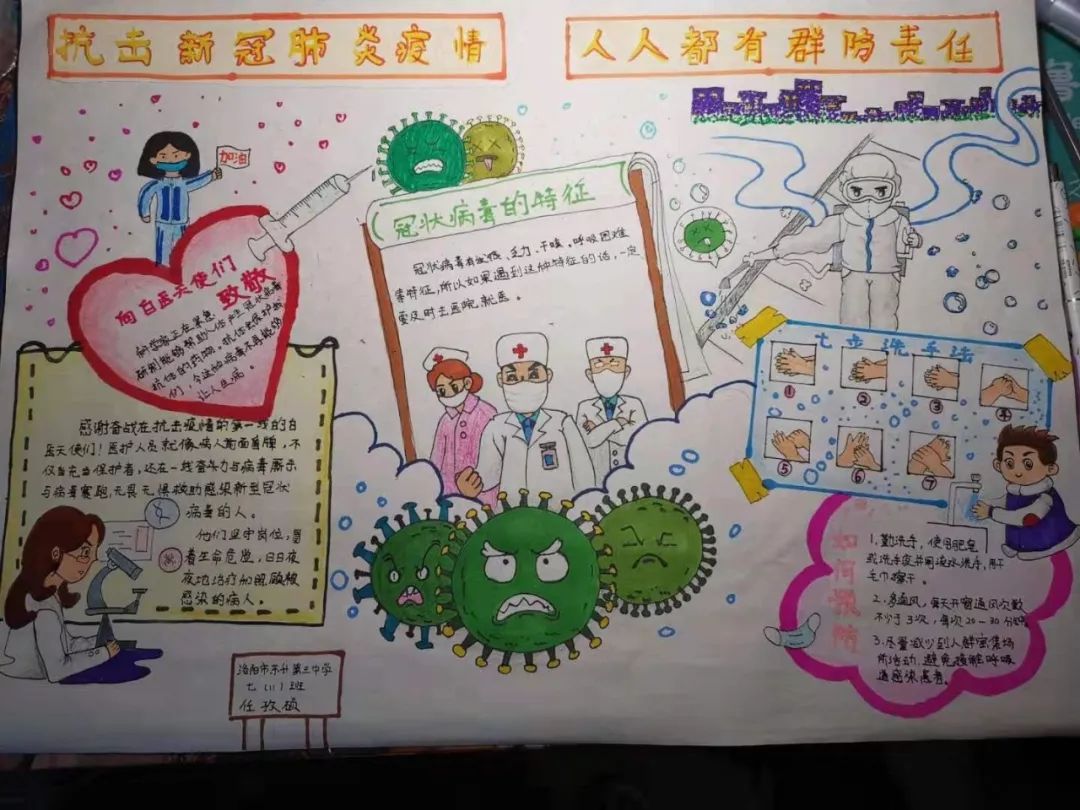 抗击新冠肺炎疫情
人人都有群防责任
加油
向白医天使们
致敬
科学家正在紧急
研制能够帮助人体产生冠状病毒
抗体的药物。抗体会保护我
们，令这种病毒不再能够
让人患病。
冠状病毒的特征
冠状病毒有发烧、乏力、干咳、呼吸困难
等特征，所以如果遇到这种特征的话，一定
要及时去医院就医。
感谢奋战在抗击疫情的第一线的白
医天使们！医护人员就像病人前面盾牌，不
仅当充当保护者，还在一线奋力与病毒厮杀
与病毒赛跑，无畏无惧救助感染新型冠状
病毒的人。
他们坚守岗位，冒
着生命危险，日日夜
夜地治疗和照顾被
感染的病人。
七步洗手法
①
②
③
④
⑤
⑥
⑦
如何预防
1.勤洗手，使用肥皂
或洗手液并用流水洗手，用干
毛巾擦干。
2.多通风，每天开窗通风次数
不少于3次，每次20-30分钟
3.尽量减少到人群密集场
所活动，避免接触呼吸
道感染患者。
洛阳市东升第三中学
七（11）班
任孜硕